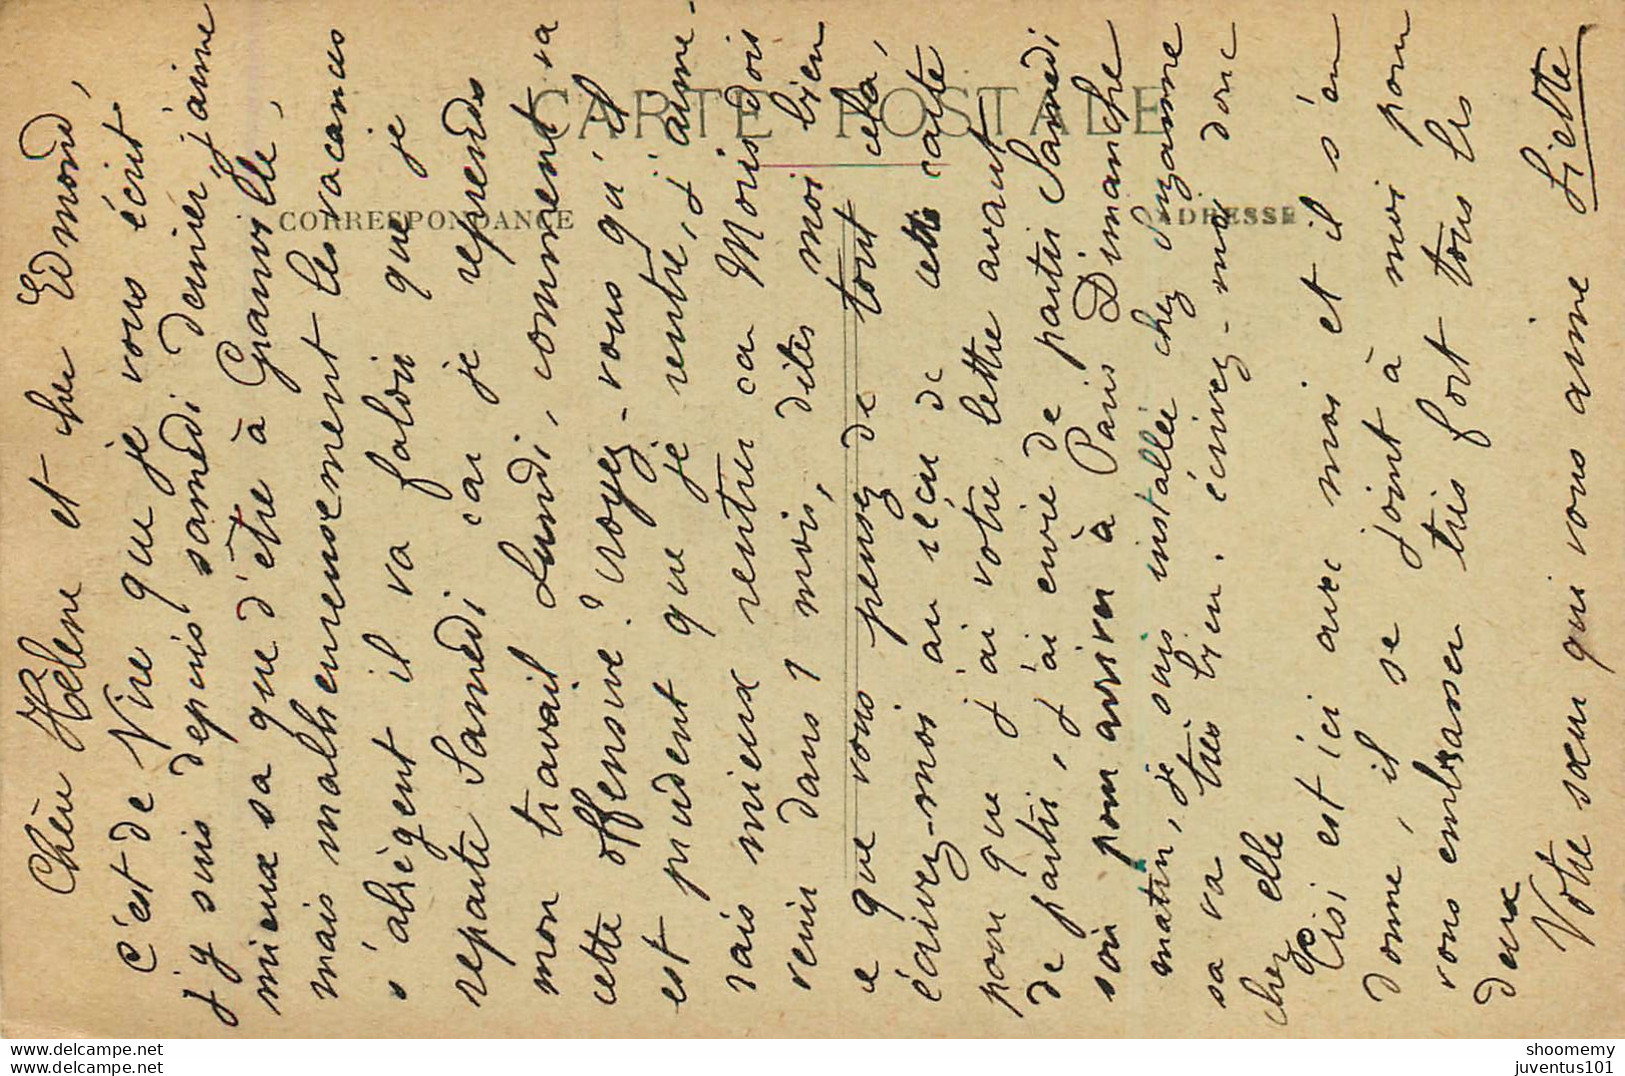 CARTE POSTALE
CORRESPONDANCE
ADRESSE
Chère Hélène et cher Edmond,
c'est de Vire que je vous écrit
j'y suis depuis samedi dernier j'aime
mieux sa que d'être à Granville,
mais malheureusement les vacances
s'abrègent il va faloir que je
reparte Samedi car je reprends
mon travail Lundi, comment sa
cette offensive? croyez-vous qu'il
est prudent que je rentre, j'aime-
rais mieux rentrer ca Mourdois
venir dans 1 mois, dites moi bien
ce que vous pensez de tout cela,
écrivez-moi au réçu de cette carte
pour que j'ai votre lettre avant
de partir, j'ai envie de partir Samedi
soir pour arriver à Paris Dimanche
matin, je suis installée chez Suzanne
sa va très bien. écrivez-moi donc
chez elle
Pisi est ici avec moi et il s'en
donne, il se joint à moi pour
vous embrasser très fort tous les
deux
Votre sœur qui vous aime Liette
www.delcampe.net
shoomemy
www.delcampe.net
juventus101